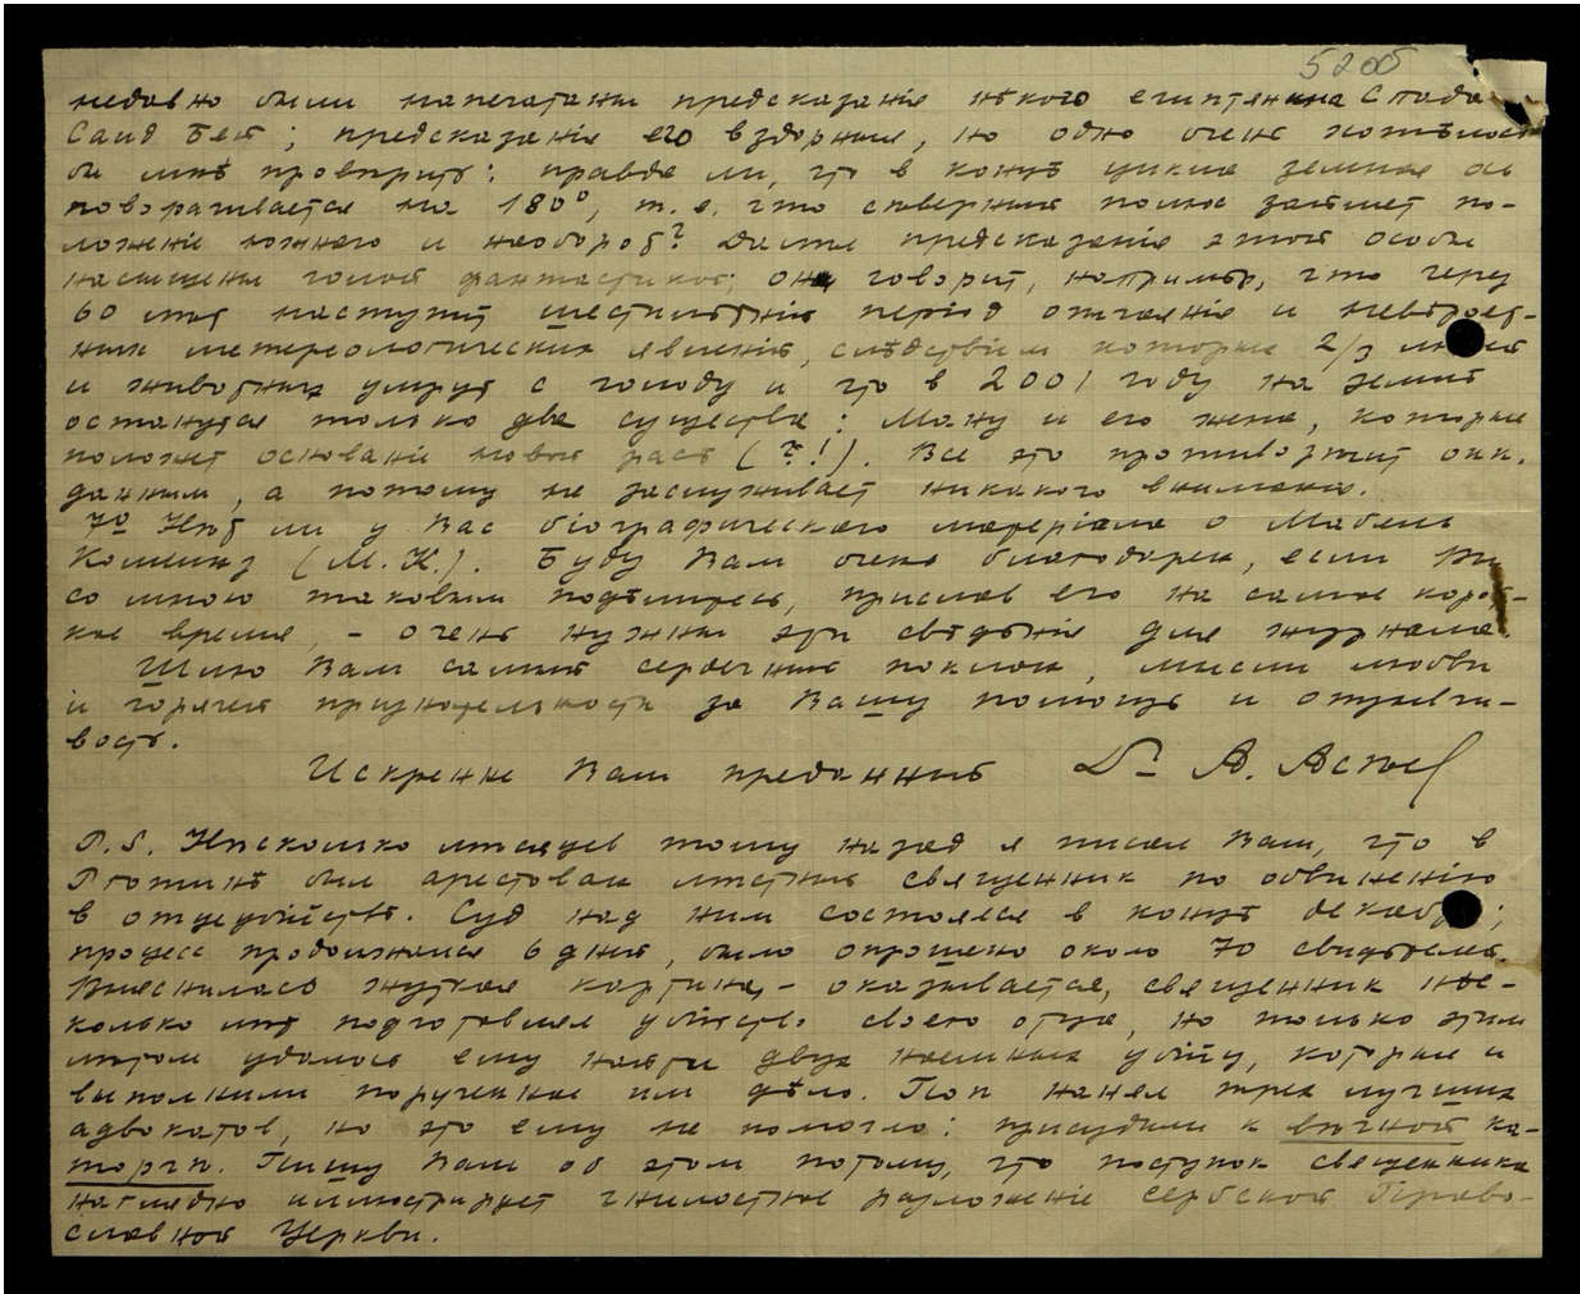 52об
недавно были напечатаны предсказанія нѣкого египтянина
Саид Бея; предсказанія его вздорныя, но одно очень хотѣлось
бы мнѣ провѣрить: правда ли, что в концѣ цикла земная ось
поворачивается на 180°, т.е. что сѣверный полюс займет по-
ложеніе южнаго и наоборот? Далѣе предсказанія этой особы
насыщены голой фантастикой; она говорит, напримѣр, что через
60 лѣт наступит шестилѣтній період отчаянія и невѣроят-
ных метереологических явленій, слѣдствіем которых 2/3 людей
и животных умрут с голоду и что в 2001 году на землѣ
останутся только два существа: Ману и его жена, которые
положат основаніе новой расѣ (?!). Все это противорѣчит окк.
данным, а потому не заслуживает никакого вниманія.
7º Нѣт ли у Вас біографическаго матеріала о Мабель
Коллинз (М.К.). Буду Вам очень благодарен, если Вы
со мною таковым подѣлитесь, прислав его на самое корот-
кое время, - очень нужны эти свѣдѣнія для журнала.
Шлю Вам самый сердечный поклон, мысли любви
и горячей признательности за Вашу помощь и отзывчи-
вость.
Искренне Ваш преданный Dr А. Асѣев
P.S. Нѣсколько мѣсяцев тому назад я писал Вам, что в
был арестован мѣстный священник по обвиненію
в отцеубійствѣ. Суд над ним состоялся в концѣ декабря;
процесс продолжался 6 дней, было опрошено около 70 свидѣтелей.
Выяснилась жуткая картина, - оказывается, священник нѣс-
колько лѣт подготовлял убійство своего отца, но только этим
лѣтом удалось ему найти двух наемных убійц, которые и
выполнили порученное им дѣло. Поп нанял трех лучших
адвокатов, но это ему не помогло: присудили к вѣчной ка-
торгѣ. Пишу Вам об этом потому, что поступок священника
наглядно иллюстрирует гнилостное разложеніе Сербской Право-
славной Церкви.